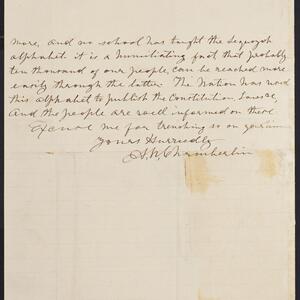 more, and no school has taught the Sequoyah
alphabet it is a humiliating fact that probably
ten thousand of our people, can be reached more
easily through the latter. The Nation has used
this alphabet to publish the Constitution, Laws &c,
And the people are well informed on these
Excuse me for trenching so on your
Yours Hurriedly
A. N. Chamberlin